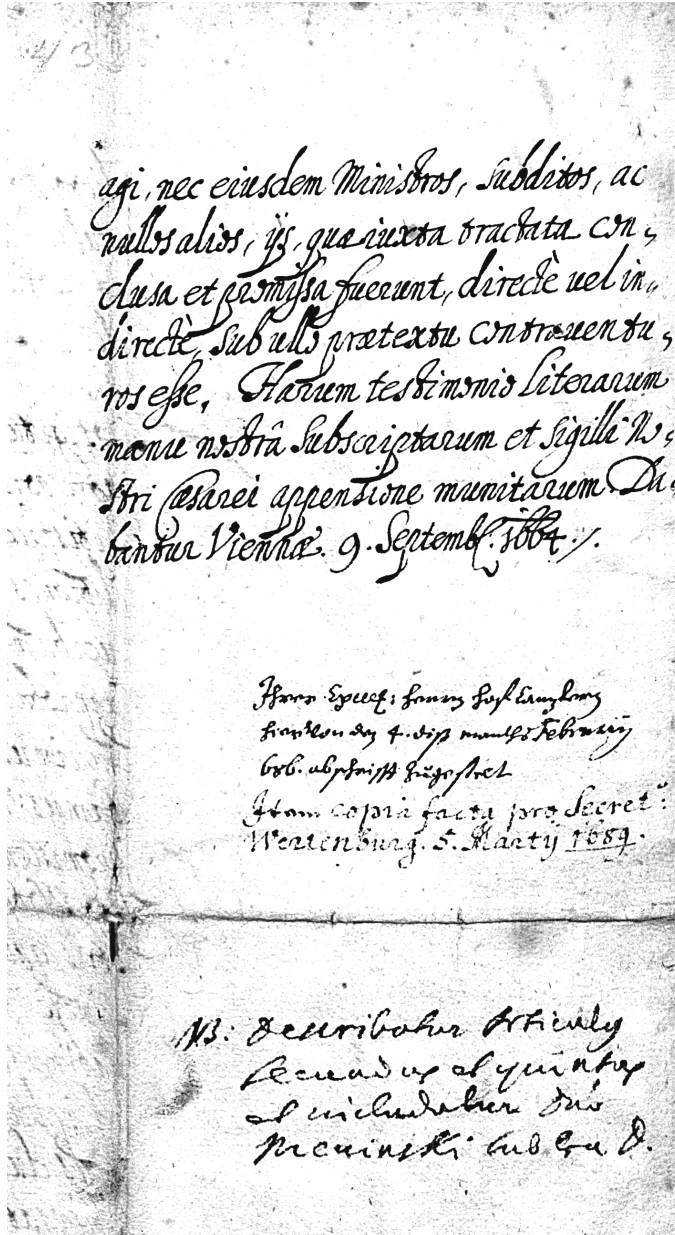 43
agi, nec eiusdem Ministros, subditos, ac
nullos alios, ijs, quæ iuxta tractata con-
clusa et promissa fuerunt, directè uel in-
directè, sub ullo prætextu contrauentu-
ros esse. Harum testimonio literarum
manu nostrâ subscriptarum et sigilli No-
stri Cæsarei appensione munitarum. Da-
bantur Viennæ. 9. Septemb. 1664 ./.
Ihrer herrn hoff Canzlern
hieruon den 4. diß monaths February
686. abschrifft zugestelt
Item copia facta pro Secret:
Wertenburg. 5. Martij 1689.
NB: describatur Articulus
secundus et quintus
et includatur Dno
Meninski sub lra D.